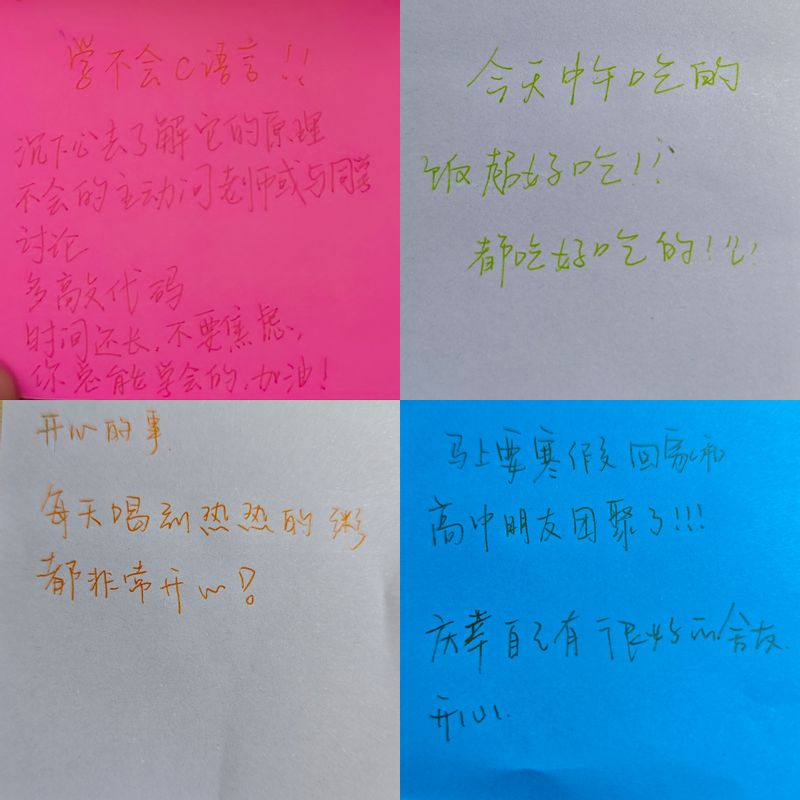 学不会C语言!!
沉下心去了解它的原理
不会的主动问老师或与同学
讨论
多高文代码
时间还长,不要焦虑,
你总能学会的,加油!
今天中午吃的
饭超好吃!!
都吃好吃的!!!
开心的事
每天喝到热热的粥
都非常开心!
马上要寒假回家和
高中朋友团聚了!!!
庆幸自己有很好的舍友
开心.